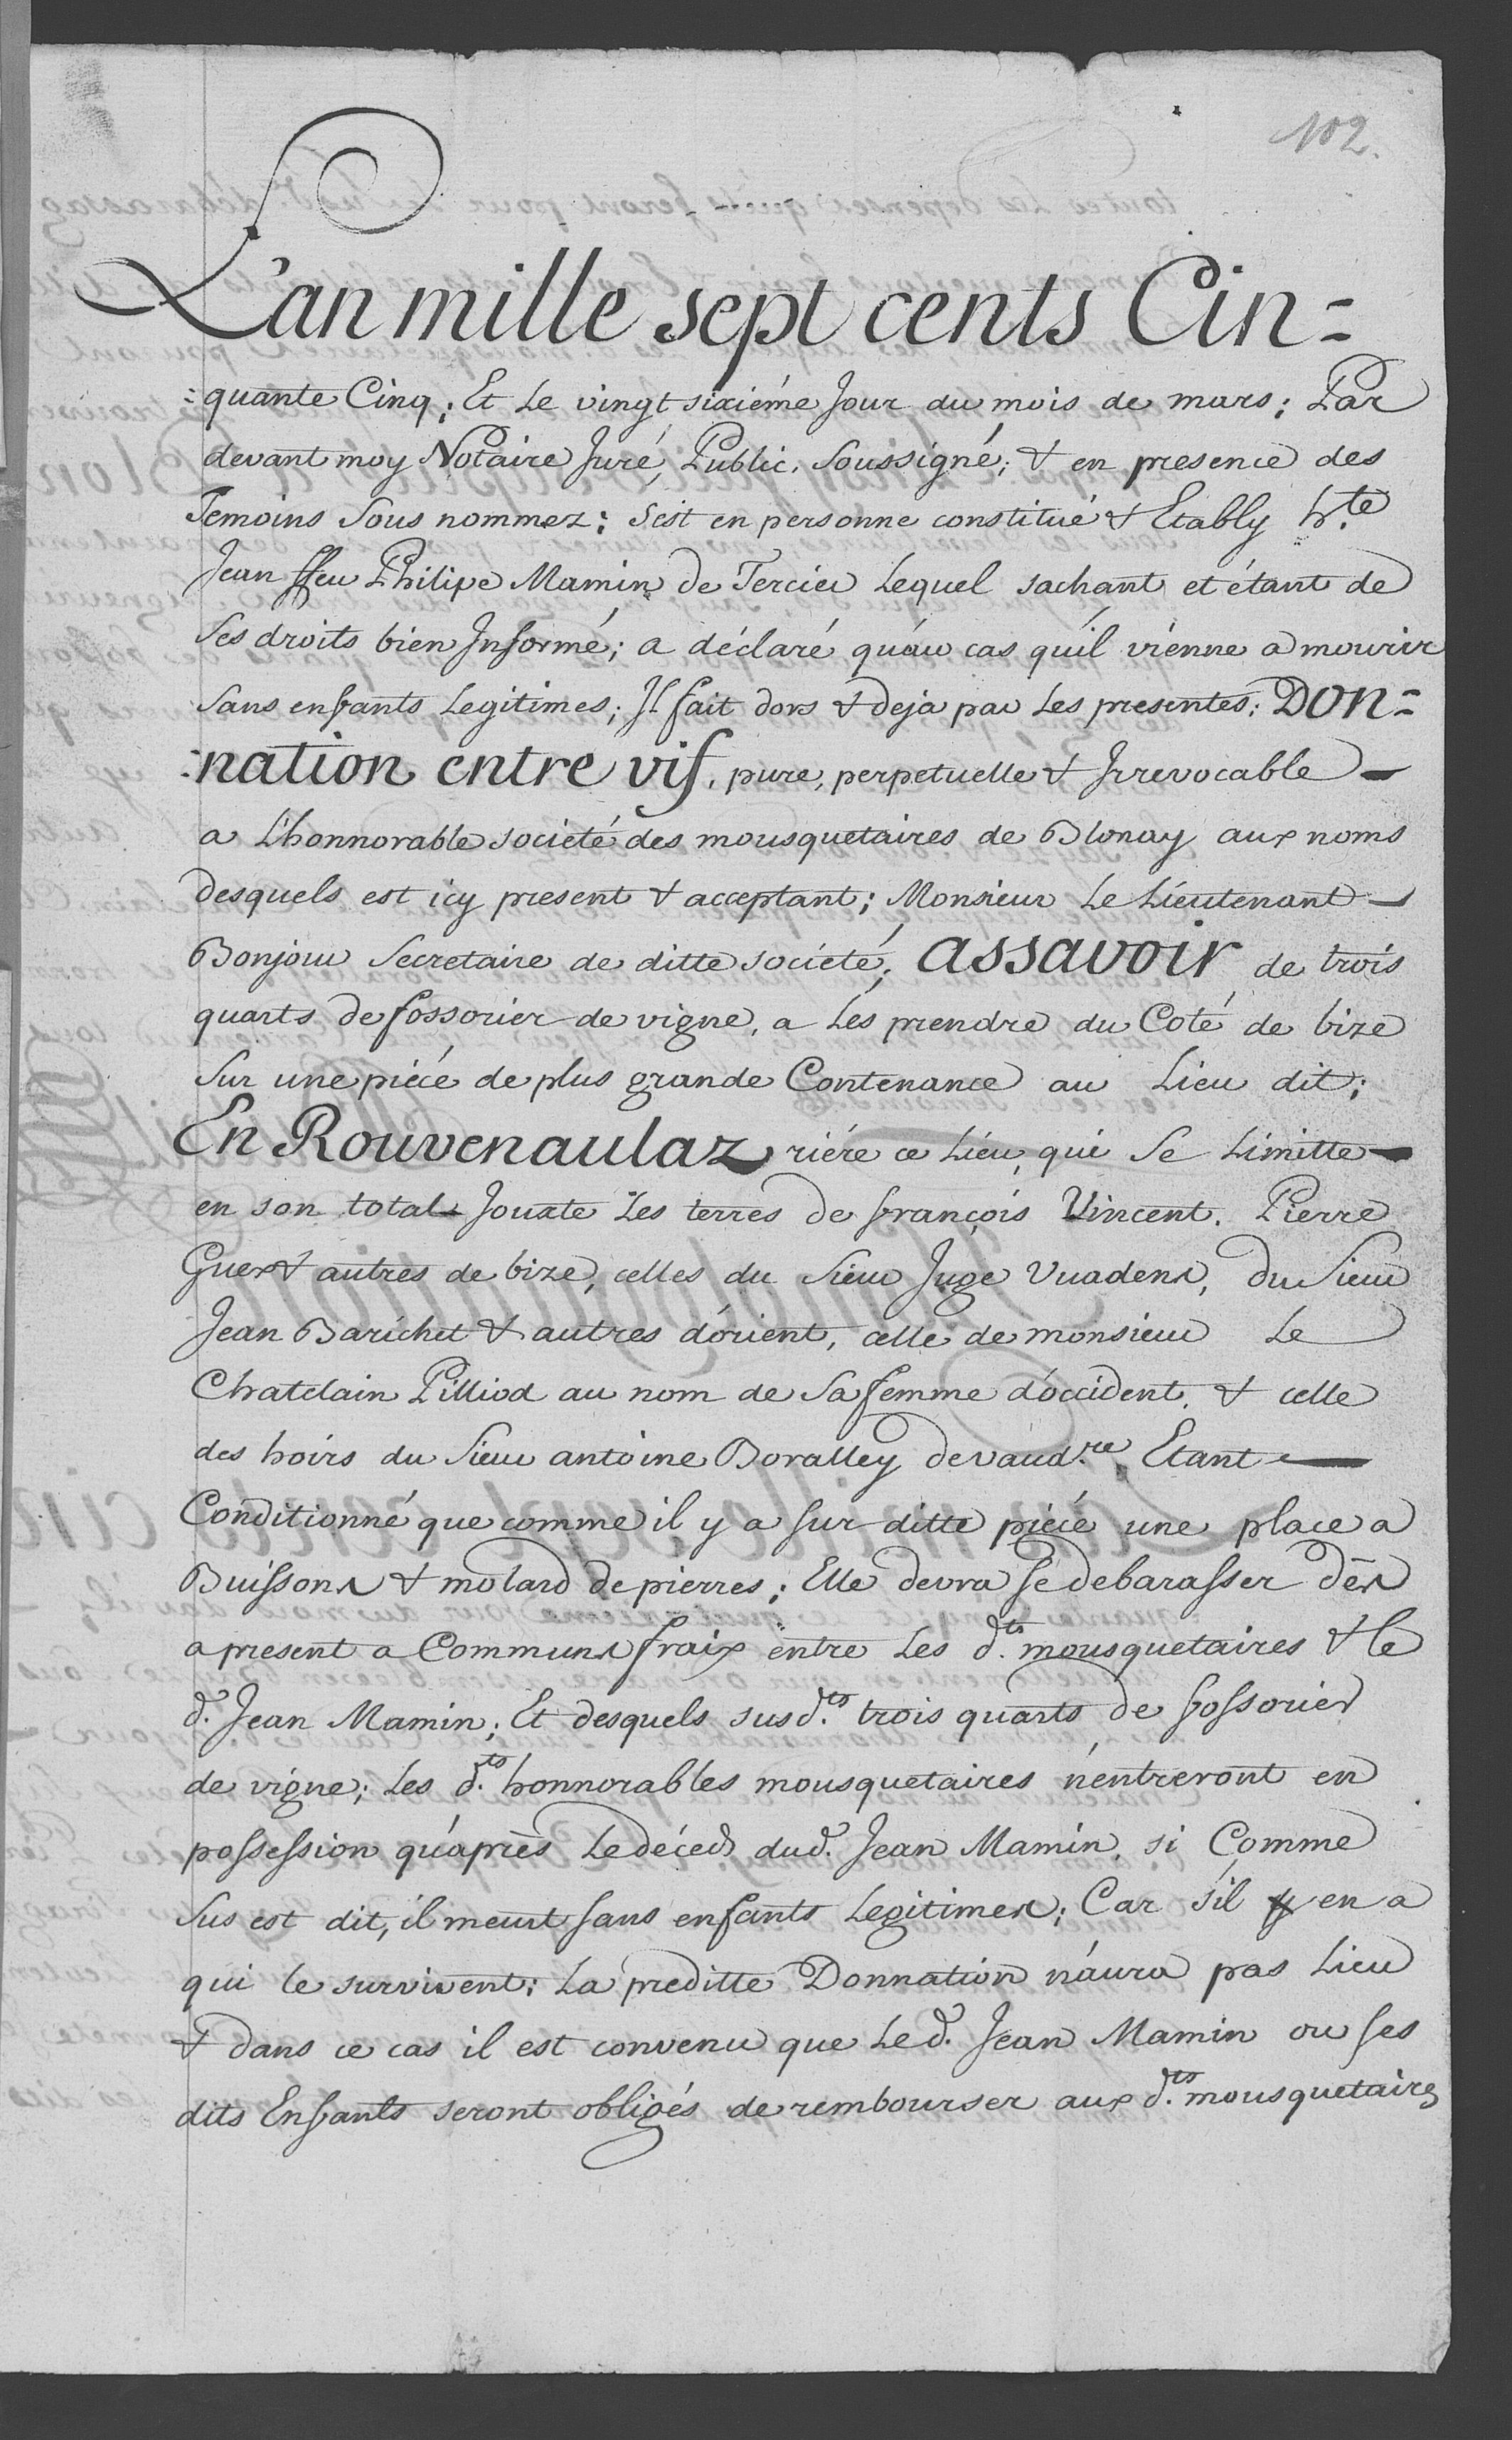 102.
L'an mille sept cents Cin=
=quante Cinq; Et Le vingt sixiéme Jour du mois de mars; Par
devant moy Notaire Juré, Public, Soussigné; & en presence des
Temoins Sous nommez; s'est en personne constitué & Etably h.te
Jean ffeu Philipe Mamin de Tercier Lequel sachant et étant de
Ses droits bien Informé; a déclaré qu'au cas qu'il vienne a mourir
Sans enfants Legitimes; Il fait dors & deja par Les presentes; Don=
=nation entre vif, pure, perpetuelle & Irrevocable
a L'honnorable societé des mousquetaires de Blonay aux noms
desquels est icy present & acceptant; Monsieur Le Lieutenant
Bonjour Secretaire de ditte societé, assavoir de trois
quarts de fossorier de vigne, a Les prendre du Coté de bize
Sur une piéce de plus grande Contenance au Lieu dit;
En Rouvenaulaz riére ce Lieu, qui Se Limitte
en son total Jouxte Les terres de françois Vincent, Pierre
Guex & autres de bize, celles du Sieur Juge Vuadens, du Sieur
Jean Barichet & autres d'orient, celle de monsieur Le
Chatelain Pilliod au nom de Sa femme d'occident, & celle
des hoirs du Sieur antoine Boralley devaud.re Etant
Conditionné que comme il y a sur ditte piéce une place a
Buissons & molard de pierres; Elle devra se debarasser dès
a present a Communs fraix entre Les d.ts mousquetaires & le
d. Jean Mamin; Et desquels susd.ts trois quarts de fossorier
de vigne; Les d.ts honnorables mousquetaires n'entreront en
possession qu'après Le déceds dud. Jean Mamin, si Comme
Sus est dit, il meurt sans enfants Legitimes; Car s'il y en a
qui le survivent; La preditte Donnation n'aura pas Lieu
& dans ce cas il est convenu que Le d. Jean Mamin ou ses
dits Enfants seront obligés de rembourser aux d.ts mousquetaires